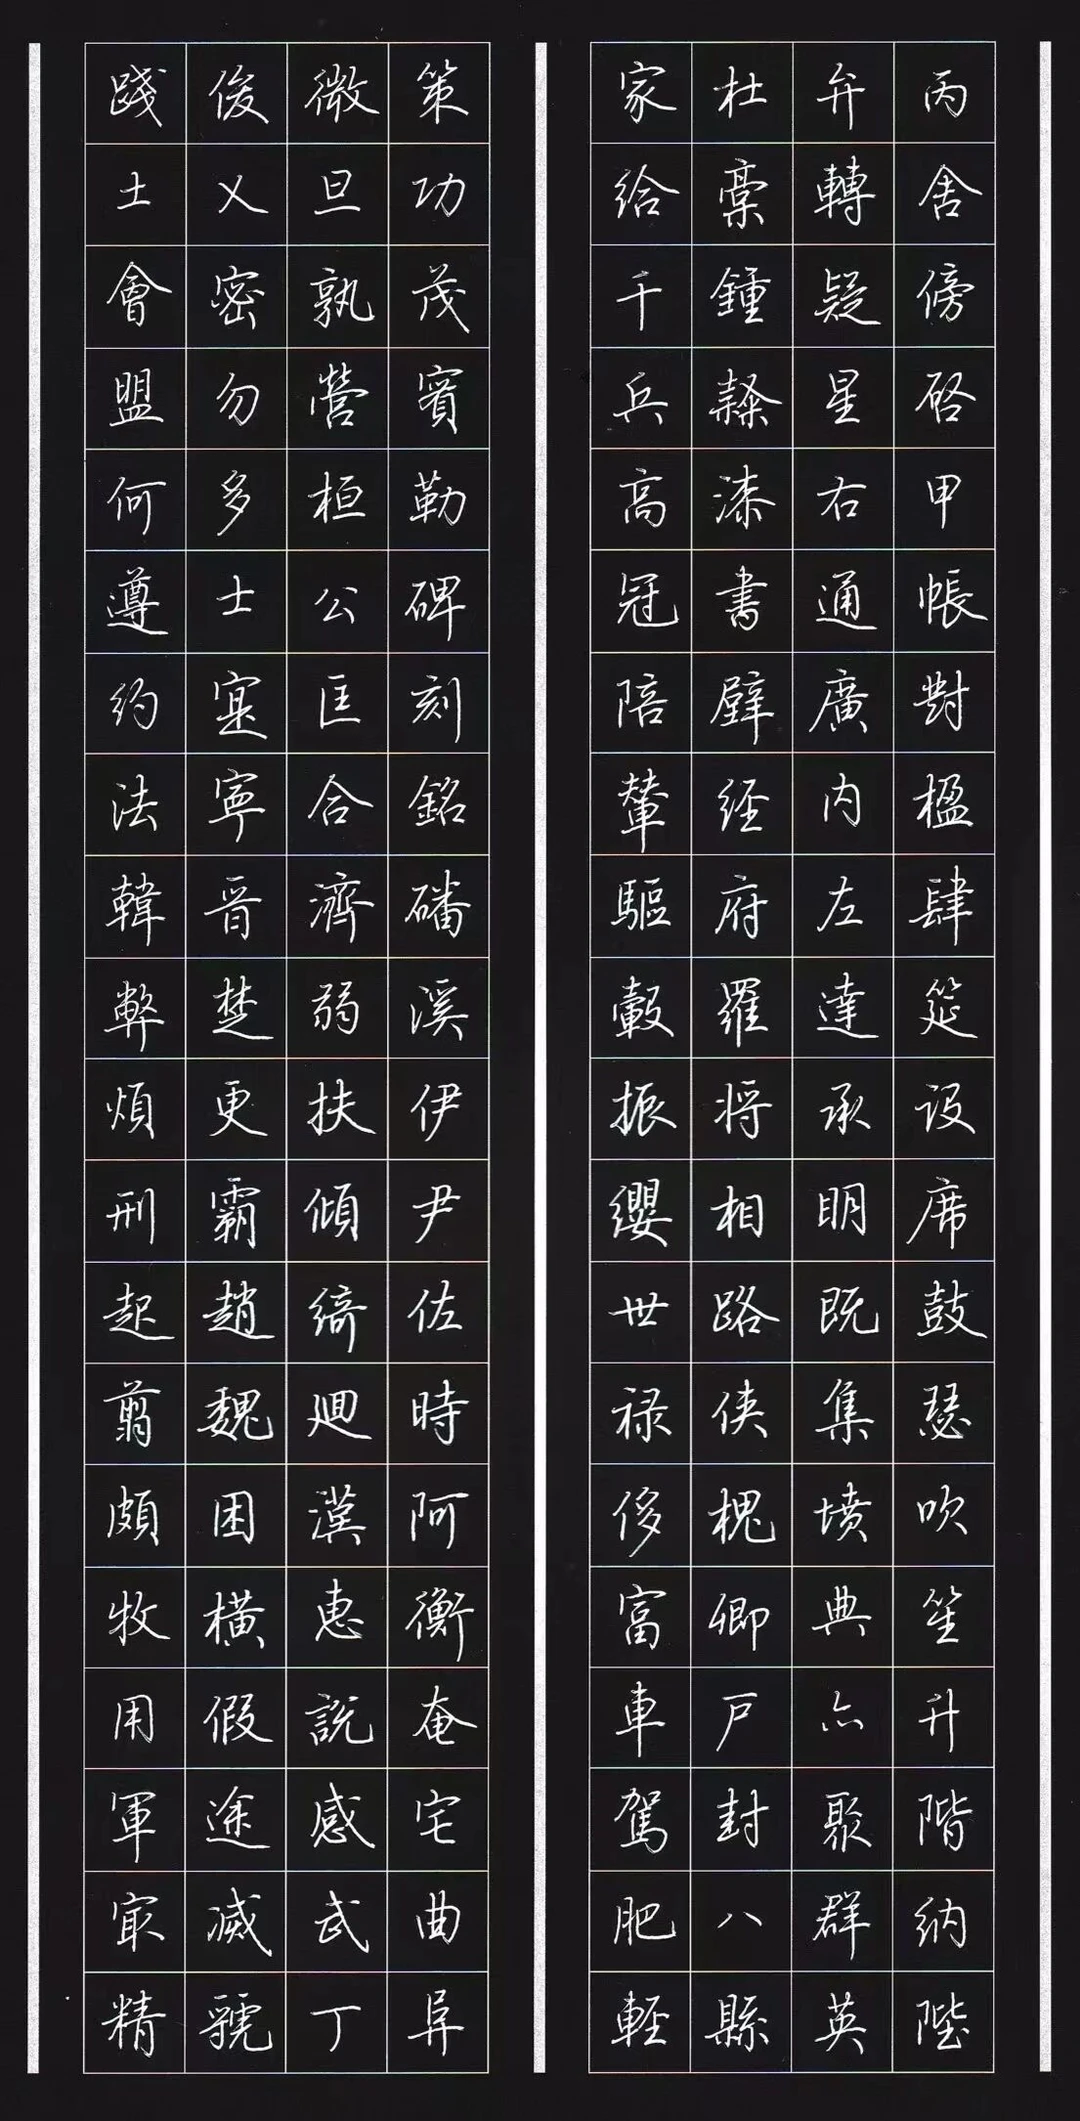 丙舍傍启甲帳對楹肆筵设席鼓瑟吹笙升階纳陛
弁轉疑星右通廣内左達承明既集墳典亦聚群英
杜稾鍾隸漆書壁経府羅将相路侠槐卿戶封八縣
家给千兵高冠陪輦驅轂振纓世禄侈富車駕肥輕
策功茂實勒碑刻銘磻溪伊尹佐時阿衡奄宅曲阜
微旦孰營桓公匡合濟弱扶傾綺迴漢惠説感武丁
俊乂密勿多士寔寧晉楚更霸趙魏困橫假途滅虢
踐土會盟何遵約法韓弊煩刑起翦頗牧用軍最精